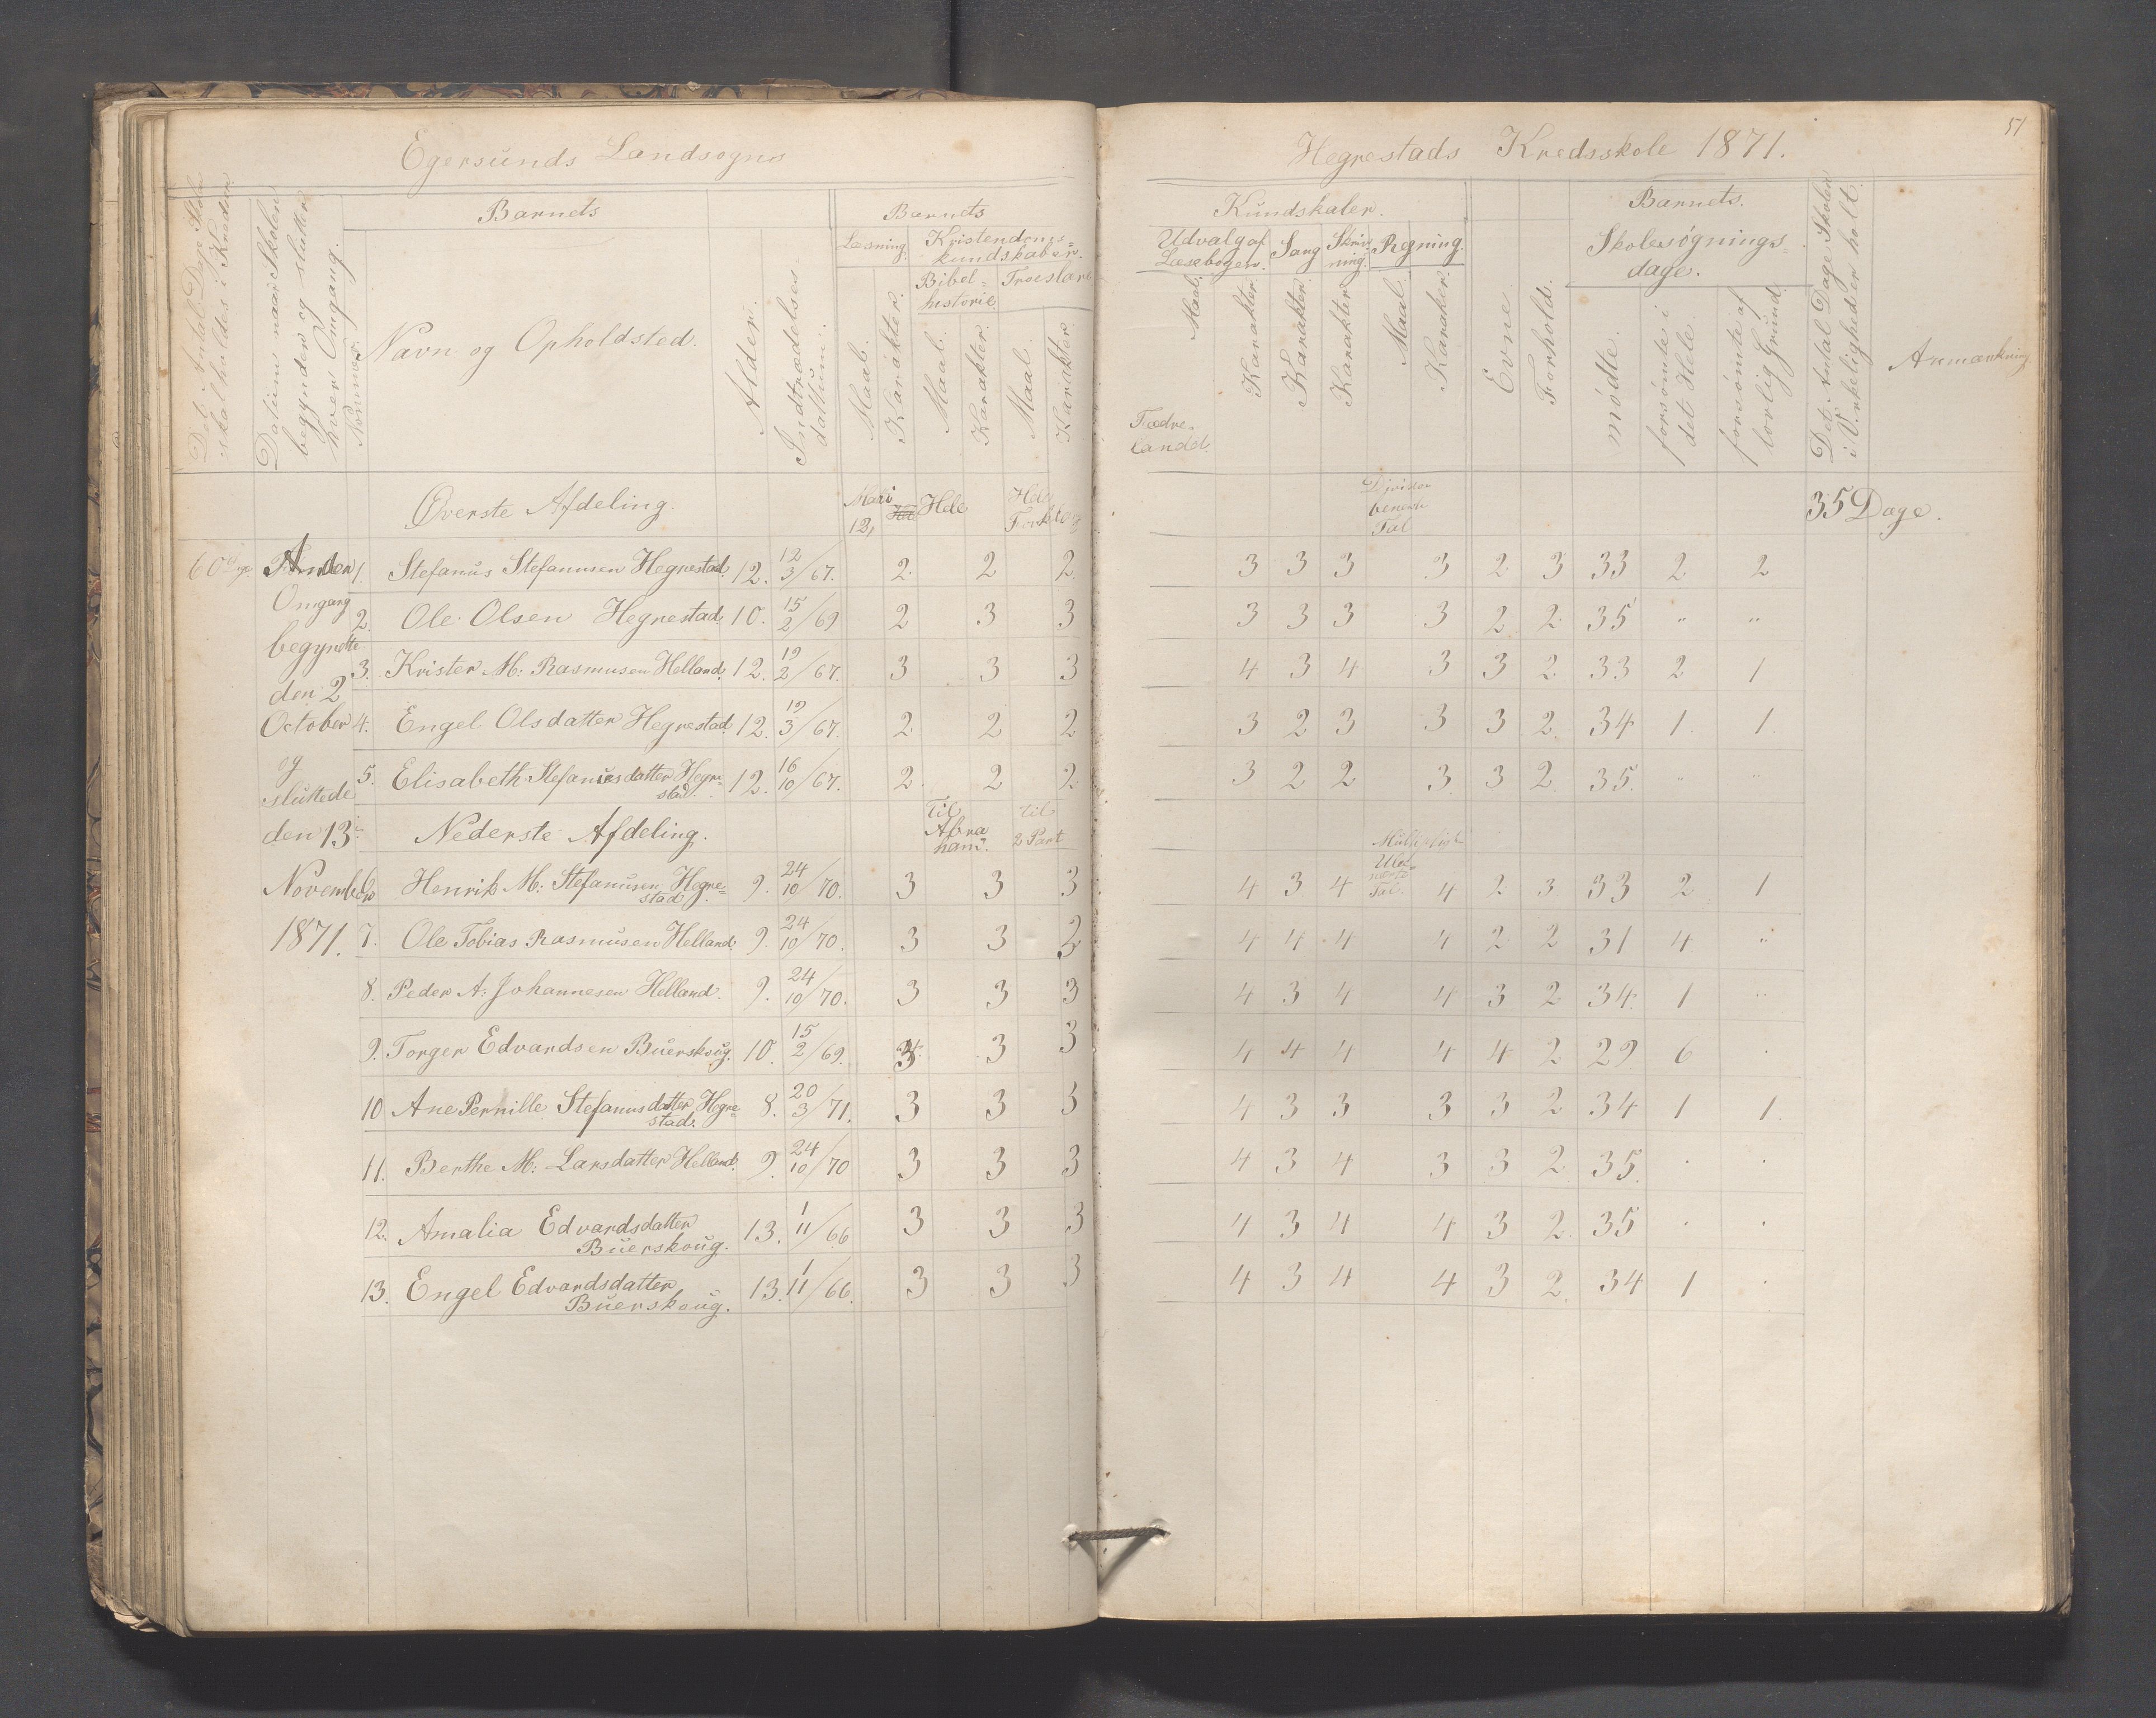 Egersunds Landsogns
Hegrestads Kredsskole 1871.
51
Det Antal Dage Skole skal holdes i Kredsen.
Datum naar Skolen begynder og slutter hver Omgang.
Nummer
Barnets
Navn og Opholdsted.
Alder.
Indtrædelses dattum.
Barnets
Læsning.
Kristendoms= kundskaber.
Bibel= historie
Troeslære
Maal. Karakter. Maal. Karakter. Maal. Karakter
Kundskaber.
Udvalg af Læsebogen. Sang Skrivning. Regning.
Maal. Karakter. Karakter. Karakter Maal. Karakter.
Fædre. landet.
Evne.
Forhold.
Barnets.
Skolesøgnings= dage.
mödte.
forsömte i det Hele.
forsömte af lovlig Grund
Det Antal Dage Skolen i Virkeligheden holdt.
Anmærkning
Øverste Afdeling. 12, Hele Hele 35 Dage.
60 Dage Anden 1. Stefanus Stefanusen Hegrestad. 12. 12/3/67. 2. 2 2 3 3 3 3 2 3 33 2 2
Omgang 2. Ole Olsen Hegrestad. 10. 15/2/69 2 3 3 3 3 3 3 2 2 35 " "
begyndte 3. Krister M: Rasmusen Helland. 12. 19/2/67. 3 3 3 4 3 4 3 3 2. 33 2 1
den 2
October 4. Engel Olsdatter Hegrestad. 12. 19/3/67. 2 2 2 3 2 3 3 3 2. 34 1. 1.
og 5. Elisabeth Stefanusdatter Hegre= stad. 12. 16/10/67. 2. 2 2 3 2 2 3. 3 2. 35. " "
sluttede
den 13 Nederste Afdeling. Til Abra ham. til 2 Part
November 6. Henrik M: Stefanusen Hegre= stad. 9. 24/10/70. 3 3 3 4 3 4 4 2 3 33 2 1
1871. 7. Ole Tobias Rasmusen Helland. 9. 24/10/70. 3 3 2 4 4 4 4 2 2 31 4 "
8. Peder A: Johannesen Helland. 9. 24/10/70. 3 3 3 4 3 4 4 3 2 34. 1 "
9. Torger Edvardsen Buerskoug. 10. 15/2/69. 3 3 3 4 4 4 4 4 2 29 6 .
10 Ane Pernille Stefanusdatter Hegre= stad. 8. 20/3/71. 3 3 3 4 3 3 3 3 2 34 1 1.
11. Berthe M: Larsdatter Helland. 9. 24/10/70 3 3 3 4 3 4 3 3 2 35. . .
12. Amalia Edvardsdatter Buerskoug. 13. 1/11/66 3 3 3 4 3 4 4 3 2. 35 . .
13. Engel Edvardsdatter Buerskoug. 13. 1/11/66. 3 3 3 4 3 4 4 3 2. 34 1 .